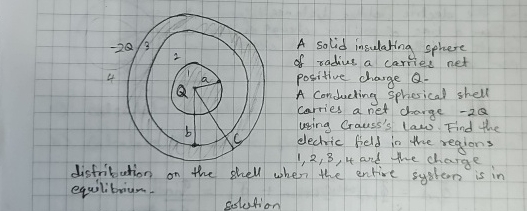 A solid insulating sphere
of radius a carries net
positive charge Q.
A conducting spherical shell
carries a net charge -2Q
using Crauss's law. Find the
electric field in the regions
1, 2, 3, 4 and the charge
distribution on the shell when the entire system is in
equilibrium.
solution
-2Q
3
2
1
a
4
Q
b
c